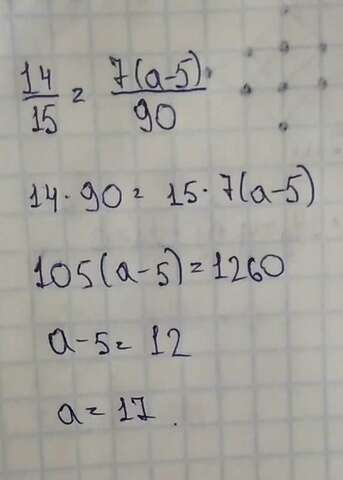 14/15 = 7(a-5)/90
14·90 = 15·7(a-5)
105(a-5) = 1260
a-5 = 12
a = 17.